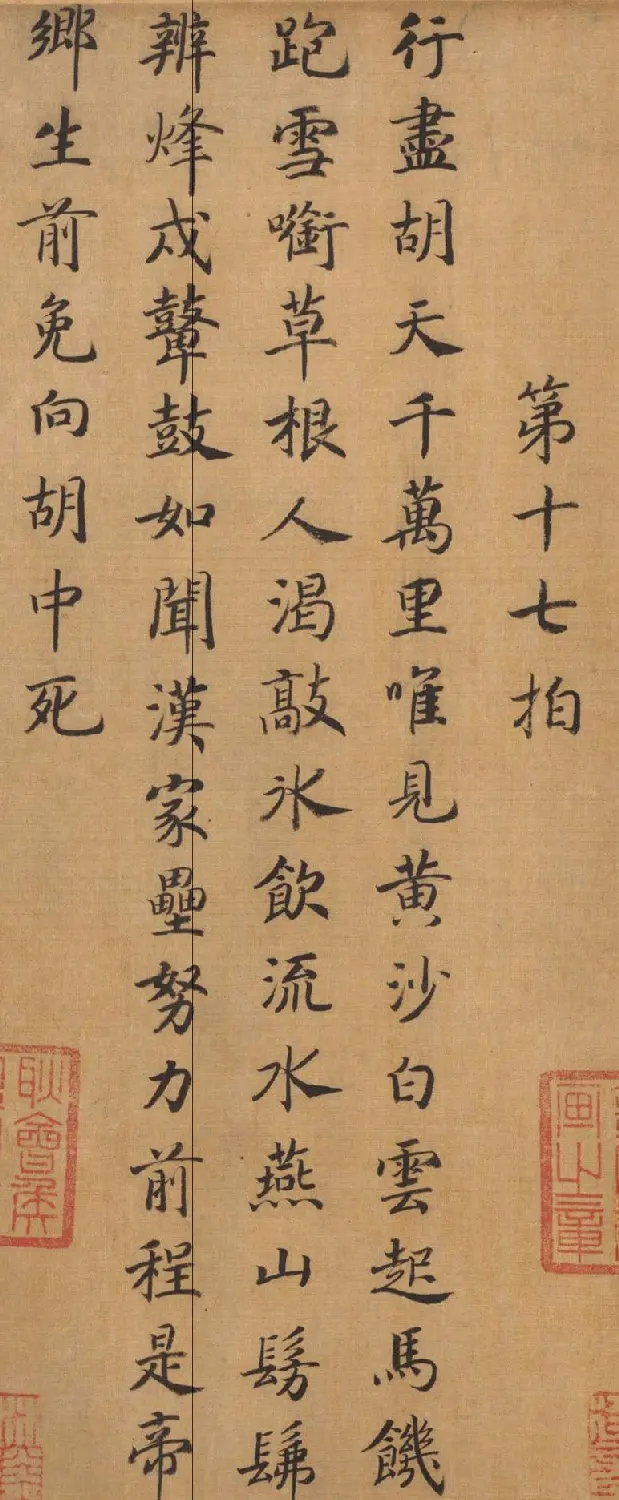 第十七拍
行盡胡天千萬里唯見黃沙白雲起馬饑
跑雪嚙草根人渴敲氷飲流水燕山髣髴
辨烽戍鼙鼓如聞漢家壘努力前程是帝
鄉生前免向胡中死